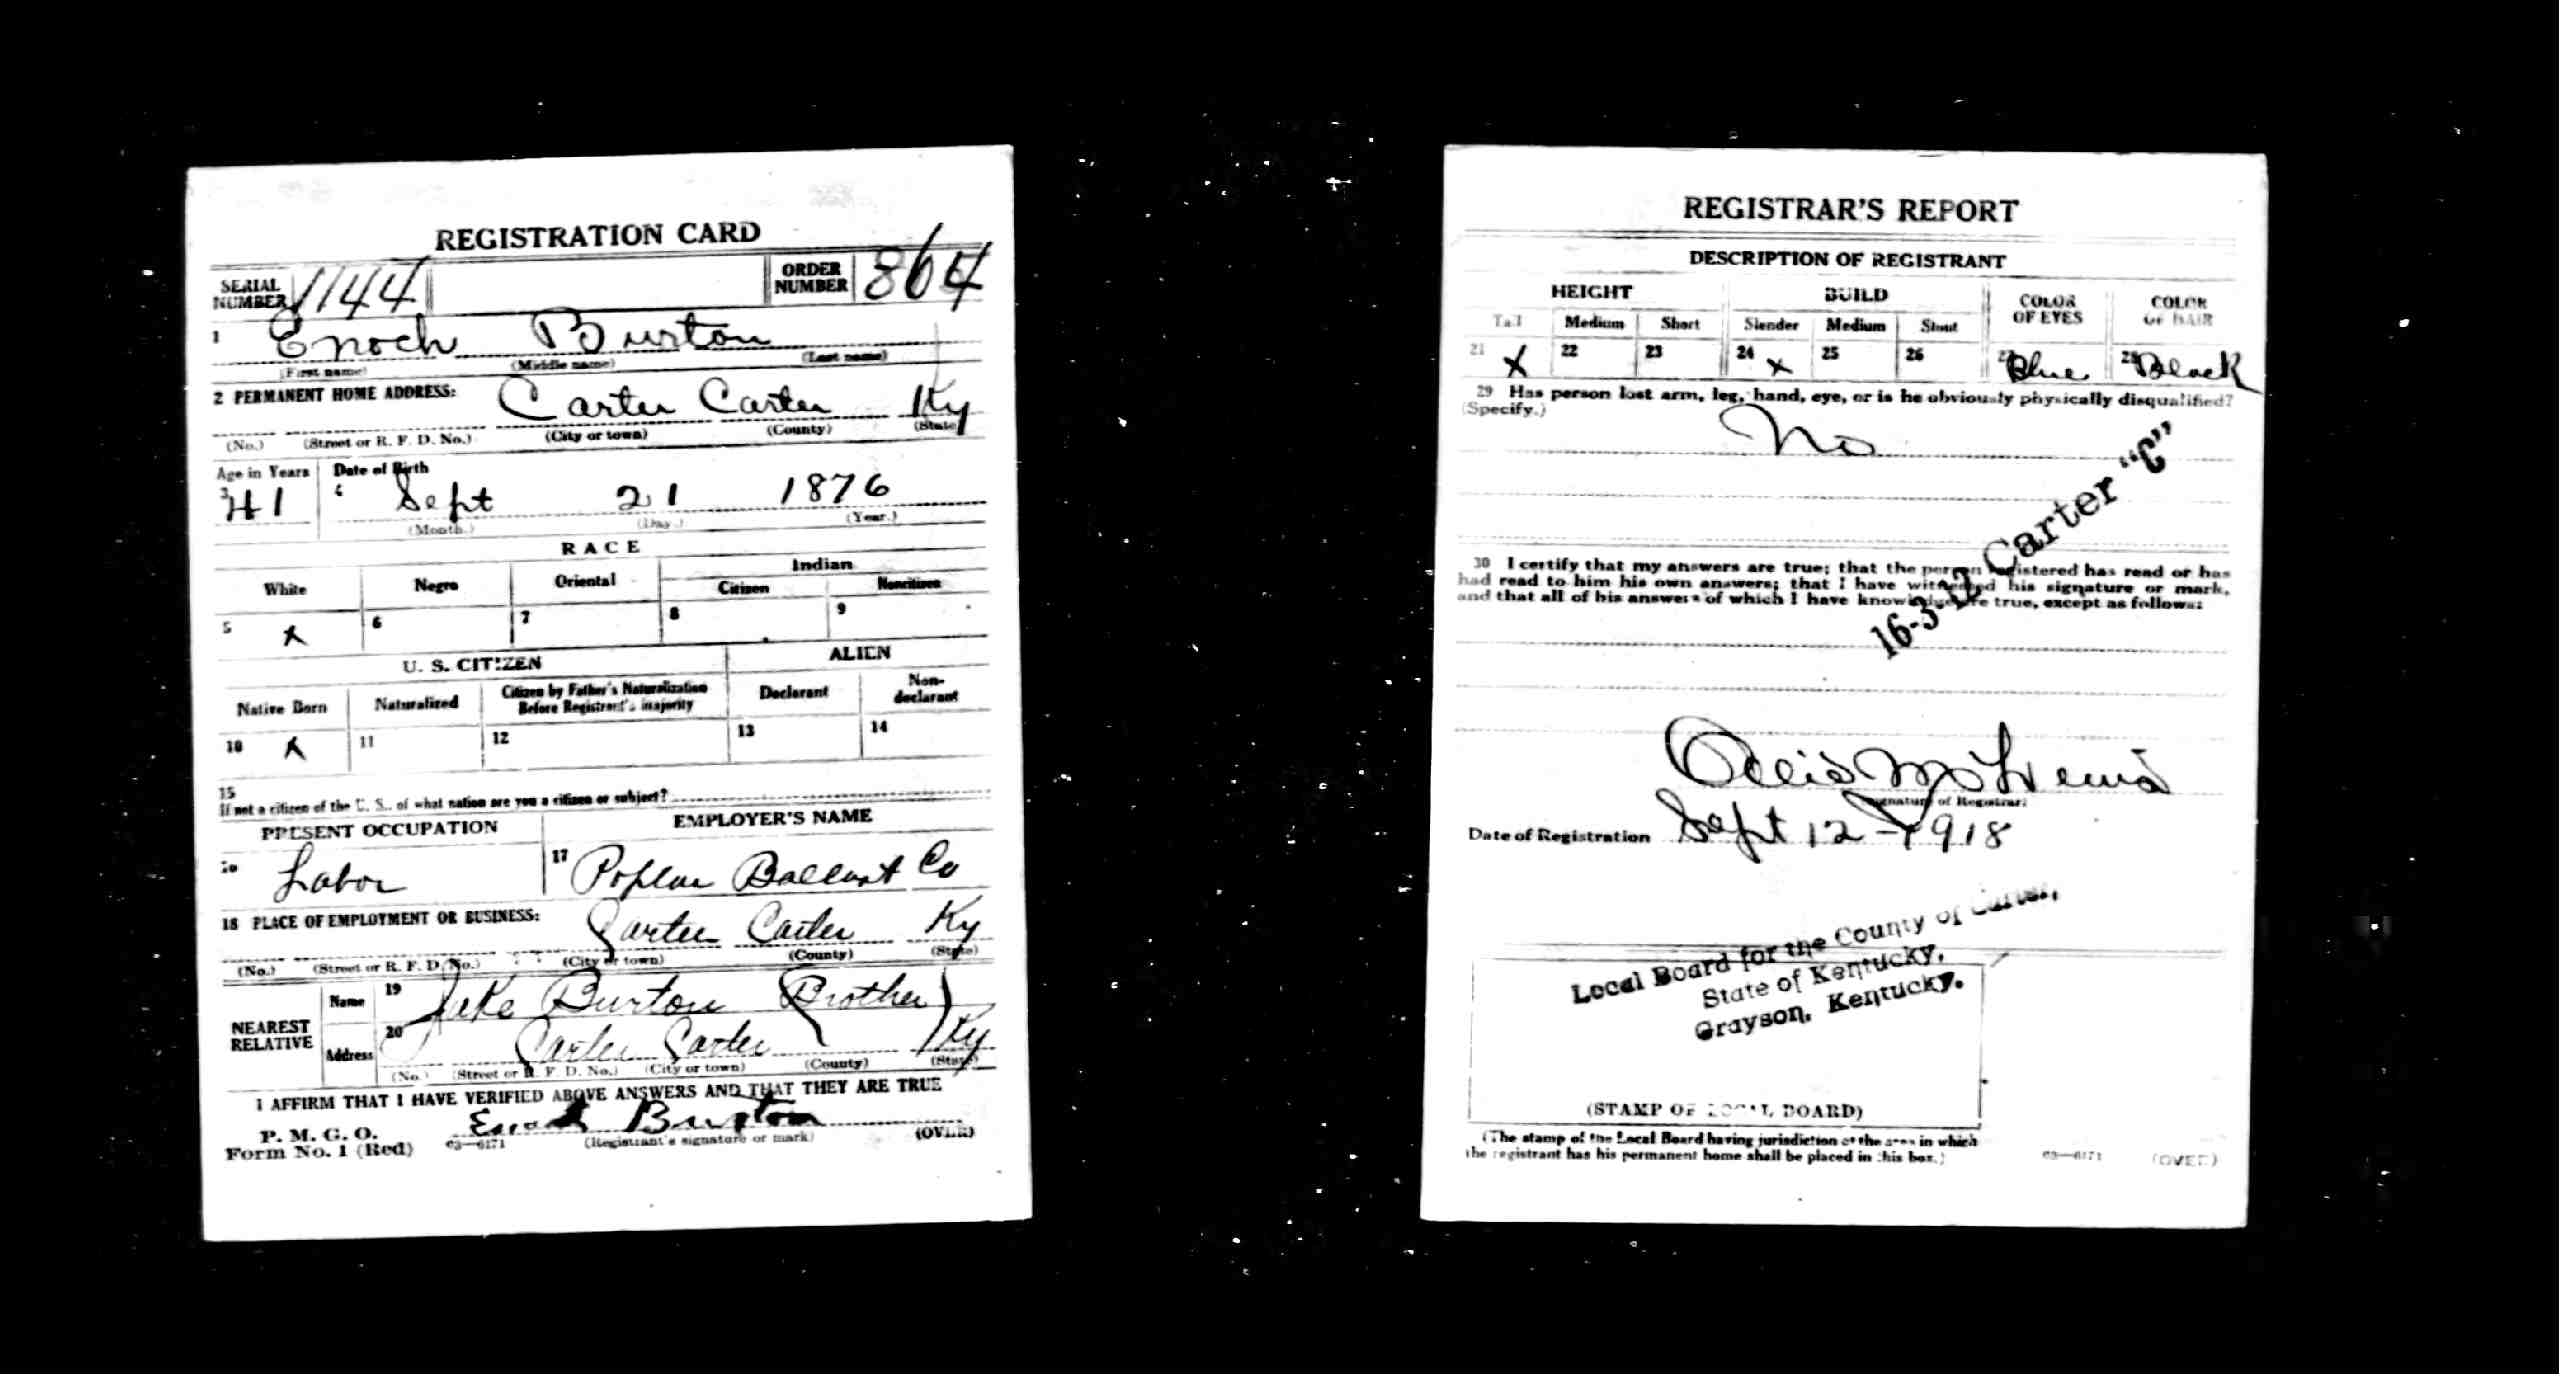 REGISTRATION CARD
SERIAL NUMBER 1144 ORDER NUMBER 864
1 Enoch Burton
(First name) (Middle name) (Last name)
2 PERMANENT HOME ADDRESS: Carter Carter Ky
(No.) (Street or R. F. D. No.) (City or town) (County) (State)
Age in Years Date of Birth
3 41 4 Sept 21 1876
(Month.) (Day.) (Year.)
RACE
White Negro Oriental Indian
Citizen Noncitizen
5 X 6 7 8 9
U. S. CITIZEN ALIEN
Native Born Naturalized Citizen by Father's Naturalization Before Registrant's majority Declarant Non-declarant
10 X 11 12 13 14
15
If not a citizen of the U. S., of what nation are you a citizen or subject?
PRESENT OCCUPATION EMPLOYER'S NAME
16 Labor 17 Poplar Ballast Co
18 PLACE OF EMPLOYMENT OR BUSINESS: Carter Carter Ky
(No.) (Street or R. F. D. No.) (City or town) (County) (State)
NEAREST RELATIVE
Name 19 Jake Burton (Brother)
Address 20 Carter Carter Ky
(No.) (Street or R. F. D. No.) (City or town) (County) (State)
I AFFIRM THAT I HAVE VERIFIED ABOVE ANSWERS AND THAT THEY ARE TRUE
P. M. G. O.
Form No. 1 (Red) 03—6171 Enoch Burton
(Registrant's signature or mark) (OVER)
REGISTRAR'S REPORT
DESCRIPTION OF REGISTRANT
HEIGHT BUILD COLOR OF EYES COLOR OF HAIR
Tall Medium Short Slender Medium Stout
21 X 22 23 24 X 25 26 27 Blue 28 Black
29 Has person lost arm, leg, hand, eye, or is he obviously physically disqualified?
(Specify.)
No
30 I certify that my answers are true; that the person registered has read or has
had read to him his own answers; that I have witnessed his signature or mark,
and that all of his answers of which I have knowledge are true, except as follows:
16-3-12 Carter "C"
(Signature of Registrar)
Date of Registration Sept 12 - 1918
Local Board for the County of Carter,
State of Kentucky,
Grayson, Kentucky.
(STAMP OF LOCAL BOARD)
(The stamp of the Local Board having jurisdiction of the area in which
the registrant has his permanent home shall be placed in this box.)
03—6171 (OVER)